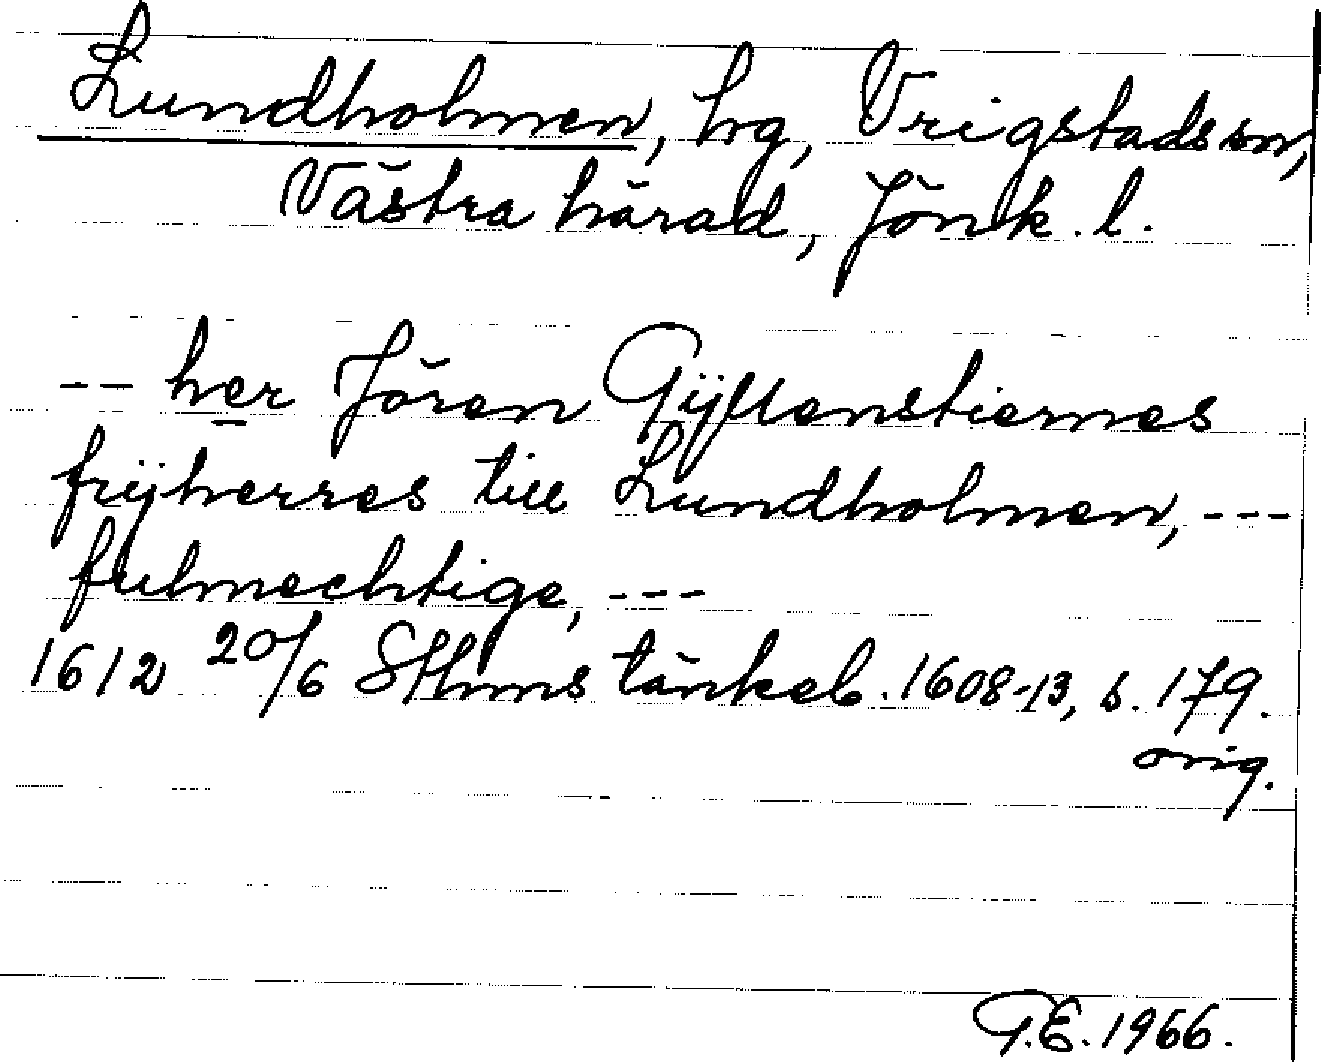 Lundholmen, hg, Vrigstads sn,
Västra härad, Jönk. l.
-- her Jören Gÿllenstiernes
frijherres till Lundholmen, ---
fulmechtige, ---
1612 20/6 Sthms tänkeb. 1608-13, s. 179.
orig.
G.E. 1966.